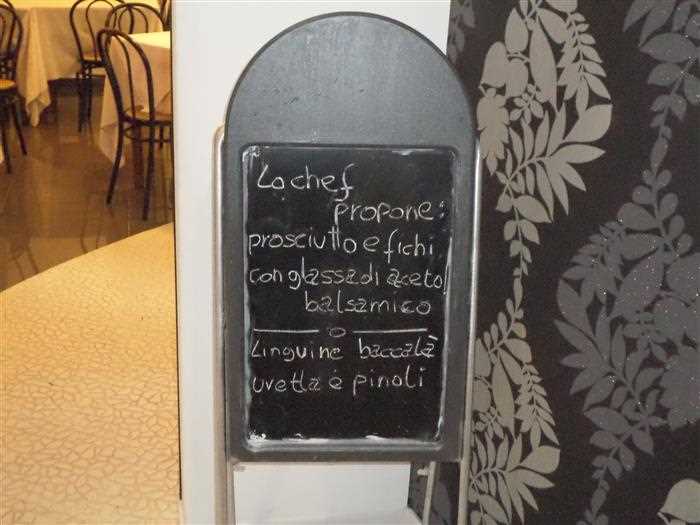 Lo chef
propone:
prosciutto e fichi
con glassa di aceto
balsamico
o
Linguine baccalà
uvetta e pinoli